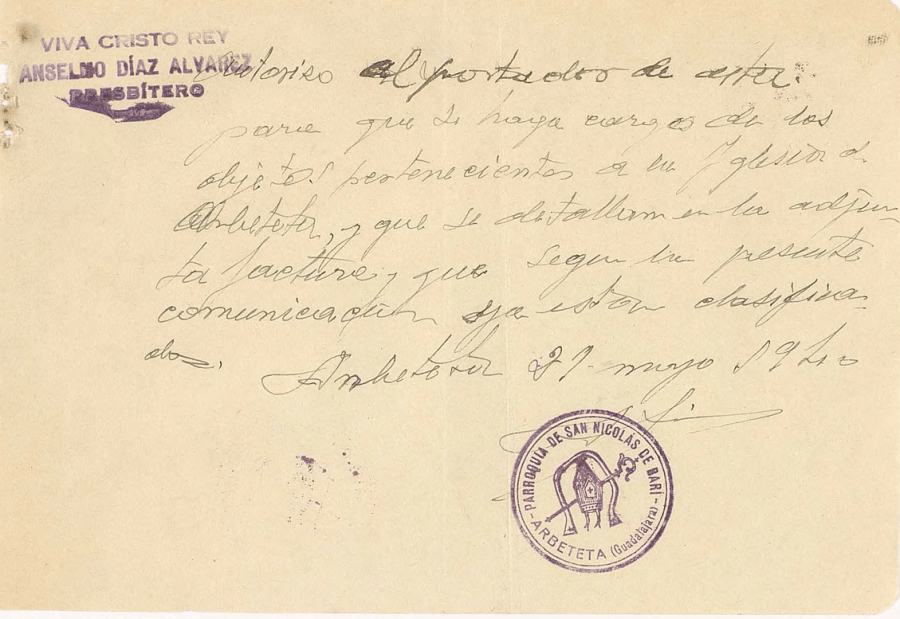 VIVA CRISTO REY
ANSELMO DÍAZ ALVAREZ
PRESBÍTERO
Autoriso al portador de esta.
para que se haga cargo de los
objetos pertenecientes a la Iglesia de
Arbeteta, y que se detallan en la adjun
ta factura y que segun la presente
comunicación ya estan clasifica
dos.
Arbeteta 21 mayo 1940
PARROQUIA DE SAN NICOLÁS DE BARI
ARBETETA (Guadalajara)